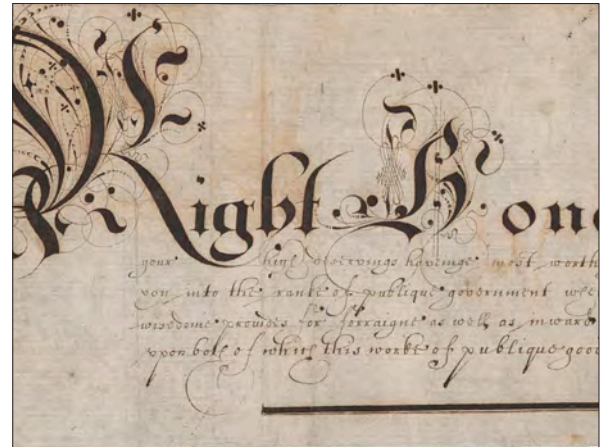 Right Hono
your high deservings havinge most worth
von into the ranke of publique government whe
wisdome provides for forraigne as well as inward
vpon both of which this worke of publique good